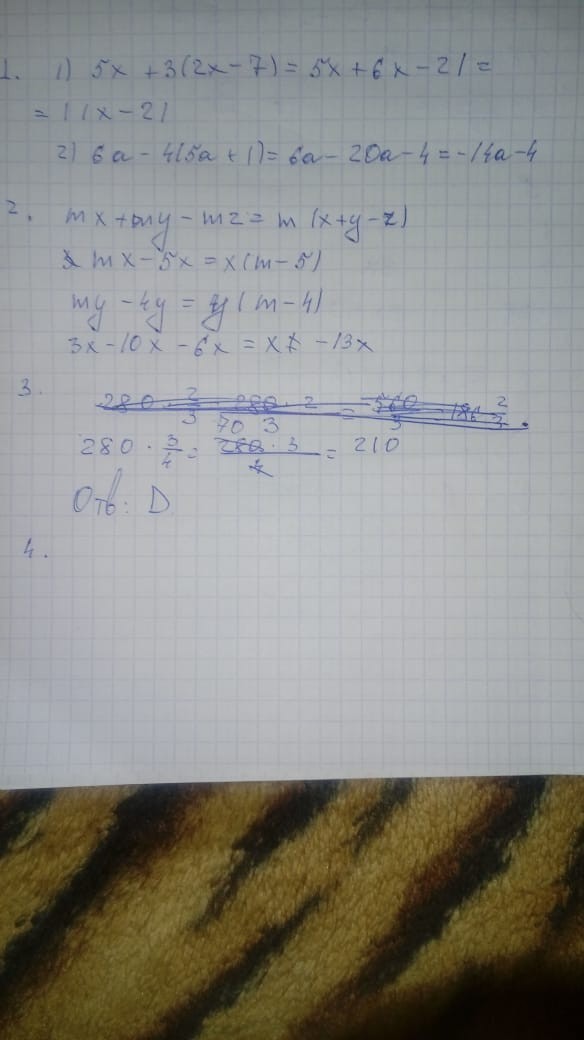 1. 1) 5x + 3(2x - 7) = 5x + 6x - 21 =
= 11x - 21
2) 6a - 4(5a + 1) = 6a - 20a - 4 = -14a - 4
2. mx + my - mz = m(x + y - z)
mx - 5x = x(m - 5)
my - 4y = y(m - 4)
3x - 10x - 6x = - 13x
3.
280 · 3/4 = 280 · 3 / 4 = 210
70
Отв: D
4.